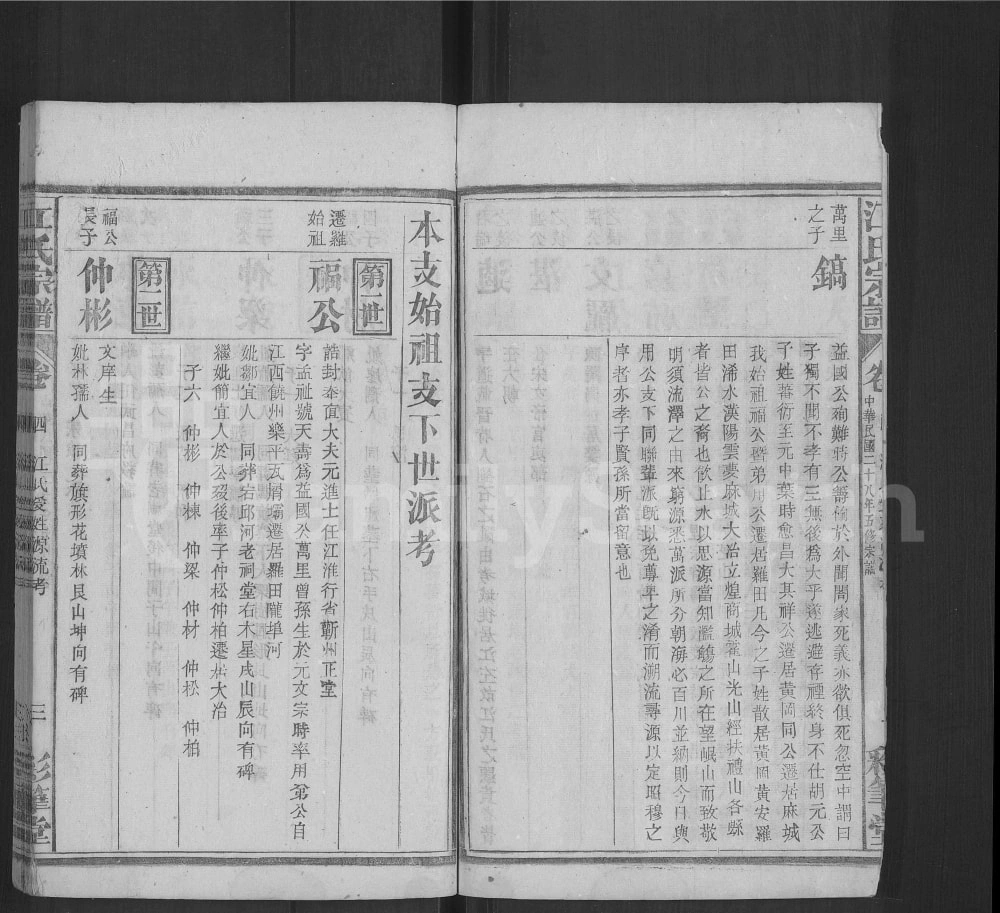 江氏宗譜
卷
中華民國二十八年五修宗譜
萬里
之子
鎬
益國公殉難蒋公壽愉於外聞闔家死義亦欲俱死忽空中謂曰
子獨不聞不孝有三無後爲大乎遂逃避音裡終身不仕胡元公
子姓蕃衍至元中葉時愈昌大其祥公遷居黄岡同公遷居麻城
我始祖福公暨弟用公遷居羅田凡今之子姓散居黄岡黄安羅
田浠水漢陽雲夢麻城大冶立煌商城霍山光山經扶禮山各縣
者皆公之裔也飲止水以思源當知濫觴之所在望岷山而致敬
明須流澤之由來窮源悉萬派所分朝海必百川並納則今日與
用公支下同聯輩派旣以免尊卑之淆而溯流尋源以定昭穆之
序者亦孝子賢孫所當留意也
彩筆堂
本支始祖支下世派考
第一世
遷羅
始祖
福公
誥封奉直大夫元進士任江淮行省蘄州正堂
字孟祉號天壽爲益國公萬里曾孫生於元文宗時率用弟公自
江西饒州樂平瓦屑壩遷居羅田隴埠河
妣鄒宜人 同葬岩邱河老祠堂右木星戌山辰向有碑
繼妣簡宜人於公歿後率子仲松仲柏遷居大冶
子六 仲彬 仲棟 仲梁 仲材 仲松 仲柏
第二世
福公
長子
仲彬
文庠生
妣林孺人 同葬旗形花墳林艮山坤向有碑
江氏宗譜
卷
四
江氏受姓源流考
三
彩筆堂